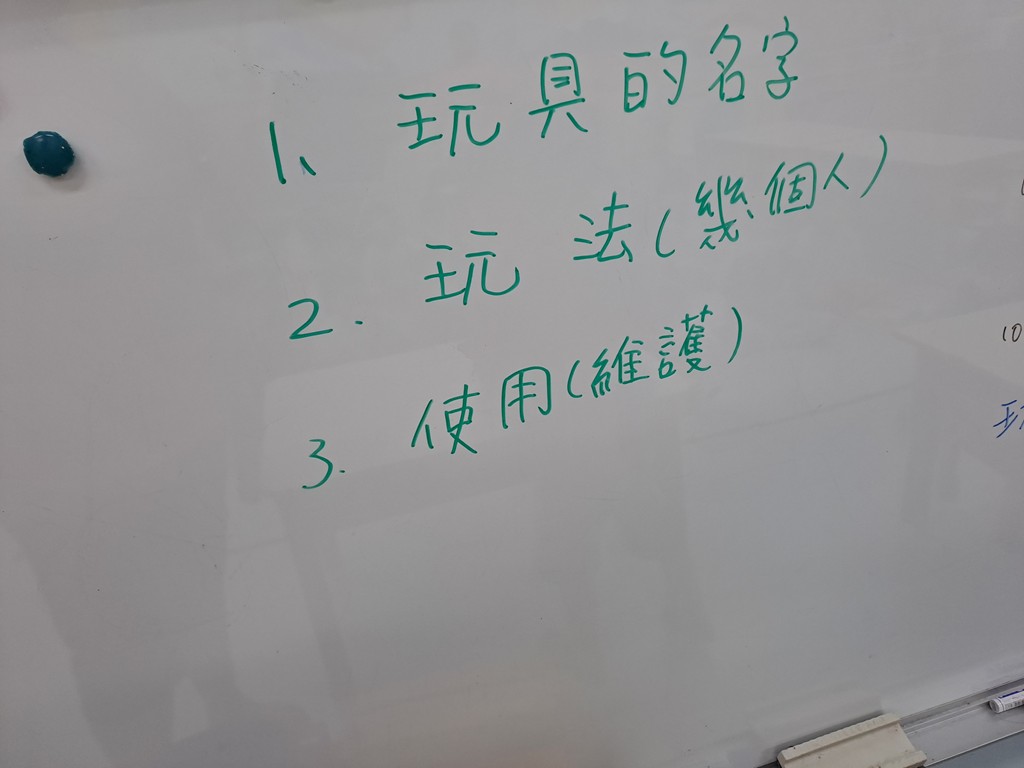 1、玩具的名字
2. 玩法(幾個人)
3. 使用(維護)
10